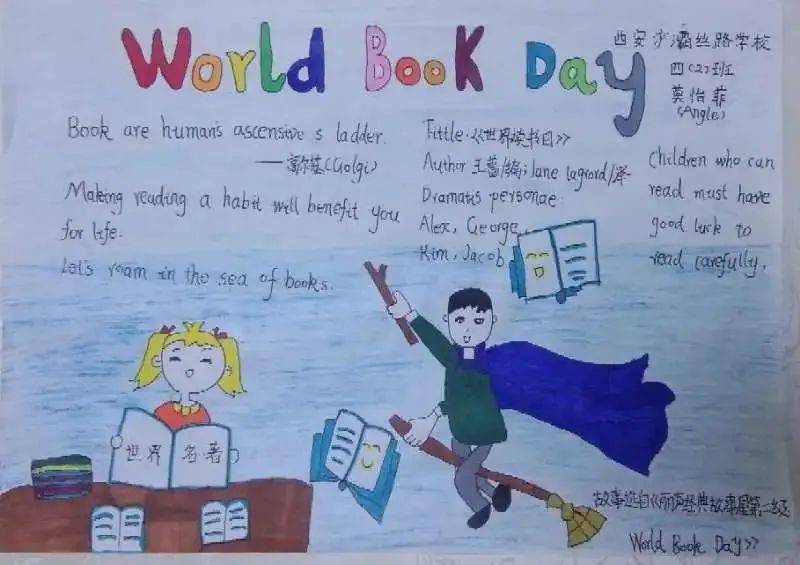 World Book Day
西安浐灞丝路学校
四(2)班
莫怡菲
(Angle)
Book are human's ascensive s ladder.
——高尔基(Golgi)
Making reading a habit will benefit you
for life.
Let's roam in the sea of books.
Tittle.《世界读书日》
Author 王蔷/编; Jane lagrord/译
Dramatis personae
Alex, George,
Kim, Jacob
Children who can
read must have
good luck to
read carefully.
世界 名著
故事选自《丽声经典故事屋第二级
World Book Day》